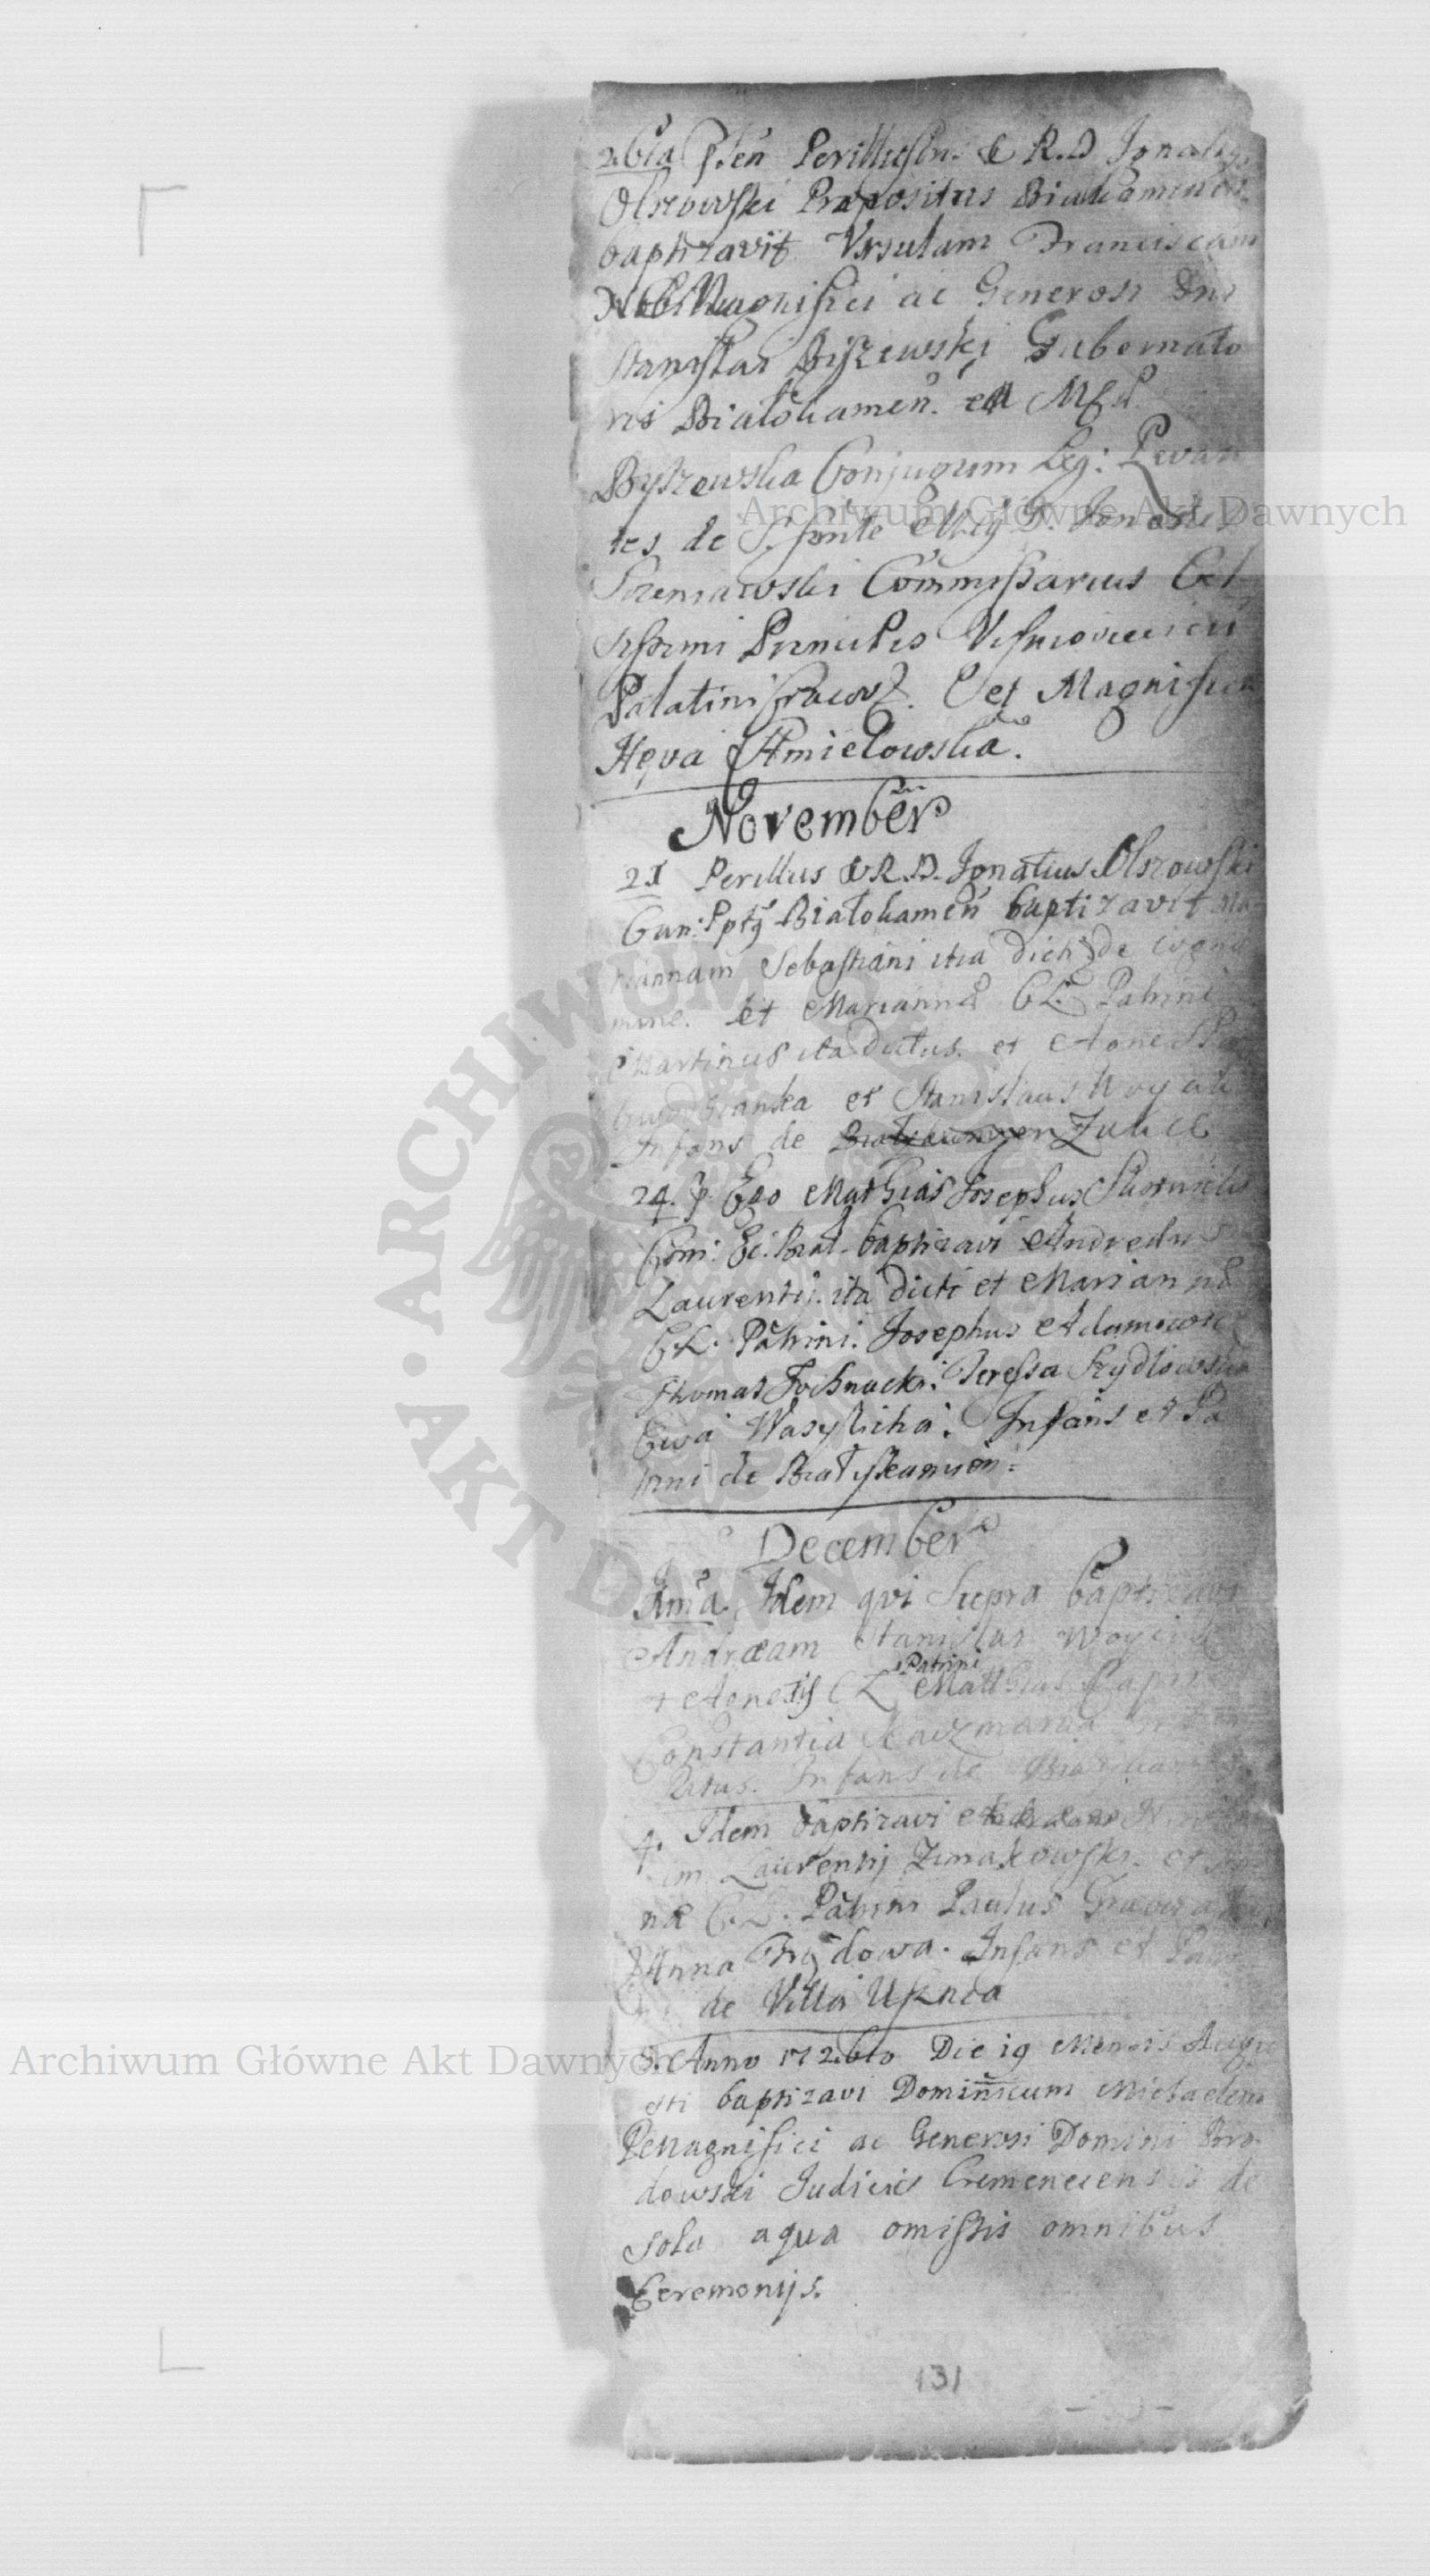 26ta Psen Perillustris & R.D Ignatius
Olszowski Præpositus Białikamienen.
baptizavit Ursulam Franciscam
Magnifici ac Generosi Dni
Stanislai Byszewski Gubernato
ris Białokamen. et M
Byszewska Conjugum Leg: Levan
tes de S. fonte
Szeniawski Commissarius Cel
sissimi Principis Visniowiecii
Palatini Cracov. et Magnifica
Heva Chmielowska.
November
21 Perillus & R.D. Ignatius Olszowski
Can: Pptg Białokamen baptizavit Ma
riannam Sebastiani ita dicti de cogno
mine. et Mariannæ C.L. Patrini
Martinus ita dictus. et Agnes
et Stanislaus Woycik
Infans de Zulice
24. Ego Mathias Josephus
Com: Ec: Biał. baptizavi Andream
Laurentij ita dicti et Mariannæ
C.L. Patrini. Josephus Adamowic
Thomas Tochnacki: Teressa Szydłowska
Ewa Wasylicha. Infans et Pa
trini de Białykamien:
December
Ama Idem qui Supra baptizavi
Andræam Stanislai Woycik
et Agnetis C L Patrini Matthias
Constantia Kaczmarka
Infans de
4. Idem baptizavi
Laurentij Zimakowski. et
næ C.L. Patrini Paulus
Anna Frydowa. Infans et Patri
ni de Villa Usznia
5. Anno 1726to Die 19 Mensis Augu
sti baptizavi Dominicum Michaelem
PeMagnifici ac Generosi Domini Bro
dowski Judicis Cremenecensis de
sola aqua omissis omnibus
Ceremonijs.
131
Archiwum Główne Akt Dawnych
Archiwum Główne Akt Dawnych
ARCHIWUM GŁÓWNE AKT DAWNYCH